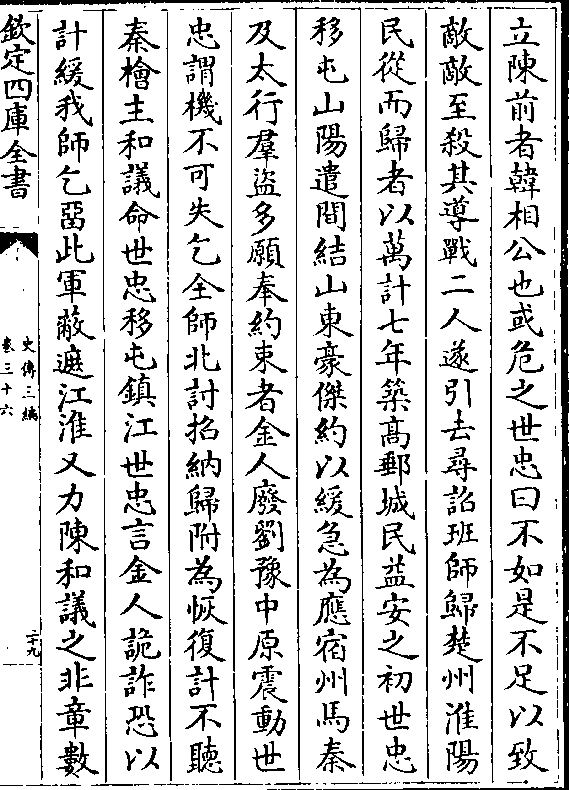 立陳前者韓相公也或危之世忠曰不如是不足以致
敵敵至殺其導戰二人遂引去尋詔班師歸楚州淮陽
民從而歸者以萬計七年築高郵城民益安之初世忠
移屯山陽遣間結山東豪傑約以緩急為應宿州馬秦
及太行羣盜多願奉約束者金人廢劉豫中原震動世
忠謂機不可失乞全師北討招納歸附為恢復計不聽
秦檜主和議命世忠移屯鎮江世忠言金人詭詐恐以
計緩我師乞畱此軍蔽遮江淮又力陳和議之非章數
欽定四庫全書
史傳三編
卷三十六
二十九